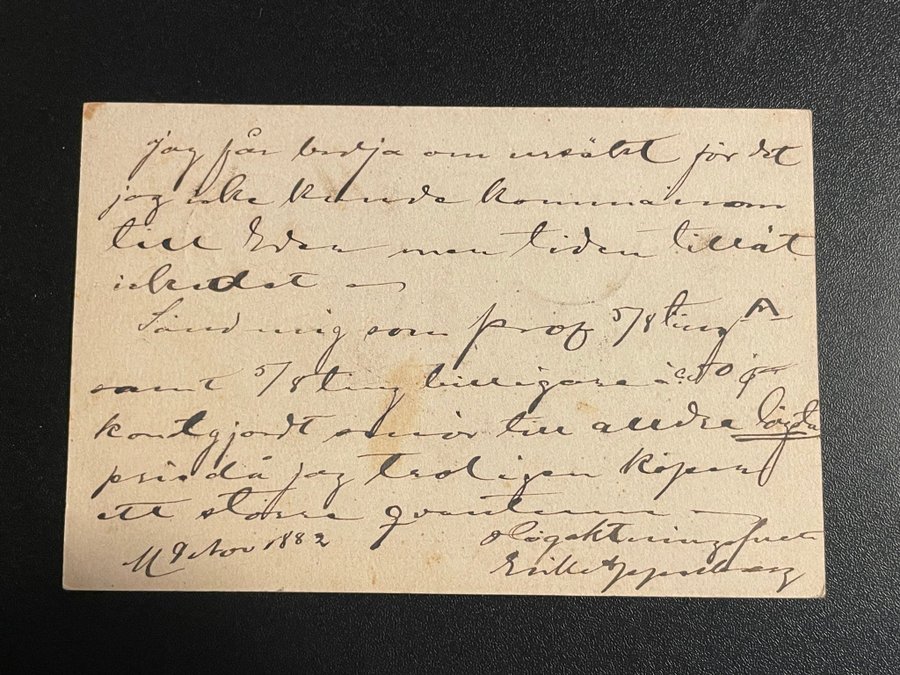 Jag får bedja om ursäkt för det
jag icke kunde komma in om
till Eden men tiden tillåt
icke det
Sänd mig som prof 5/8 ting A
samt 5/8 ting billigare à 50
kontgjordt smör till alldra lägsta
pris då jag troligen köper
ett större qvantum
9 Nov 1882 Högaktningsfull